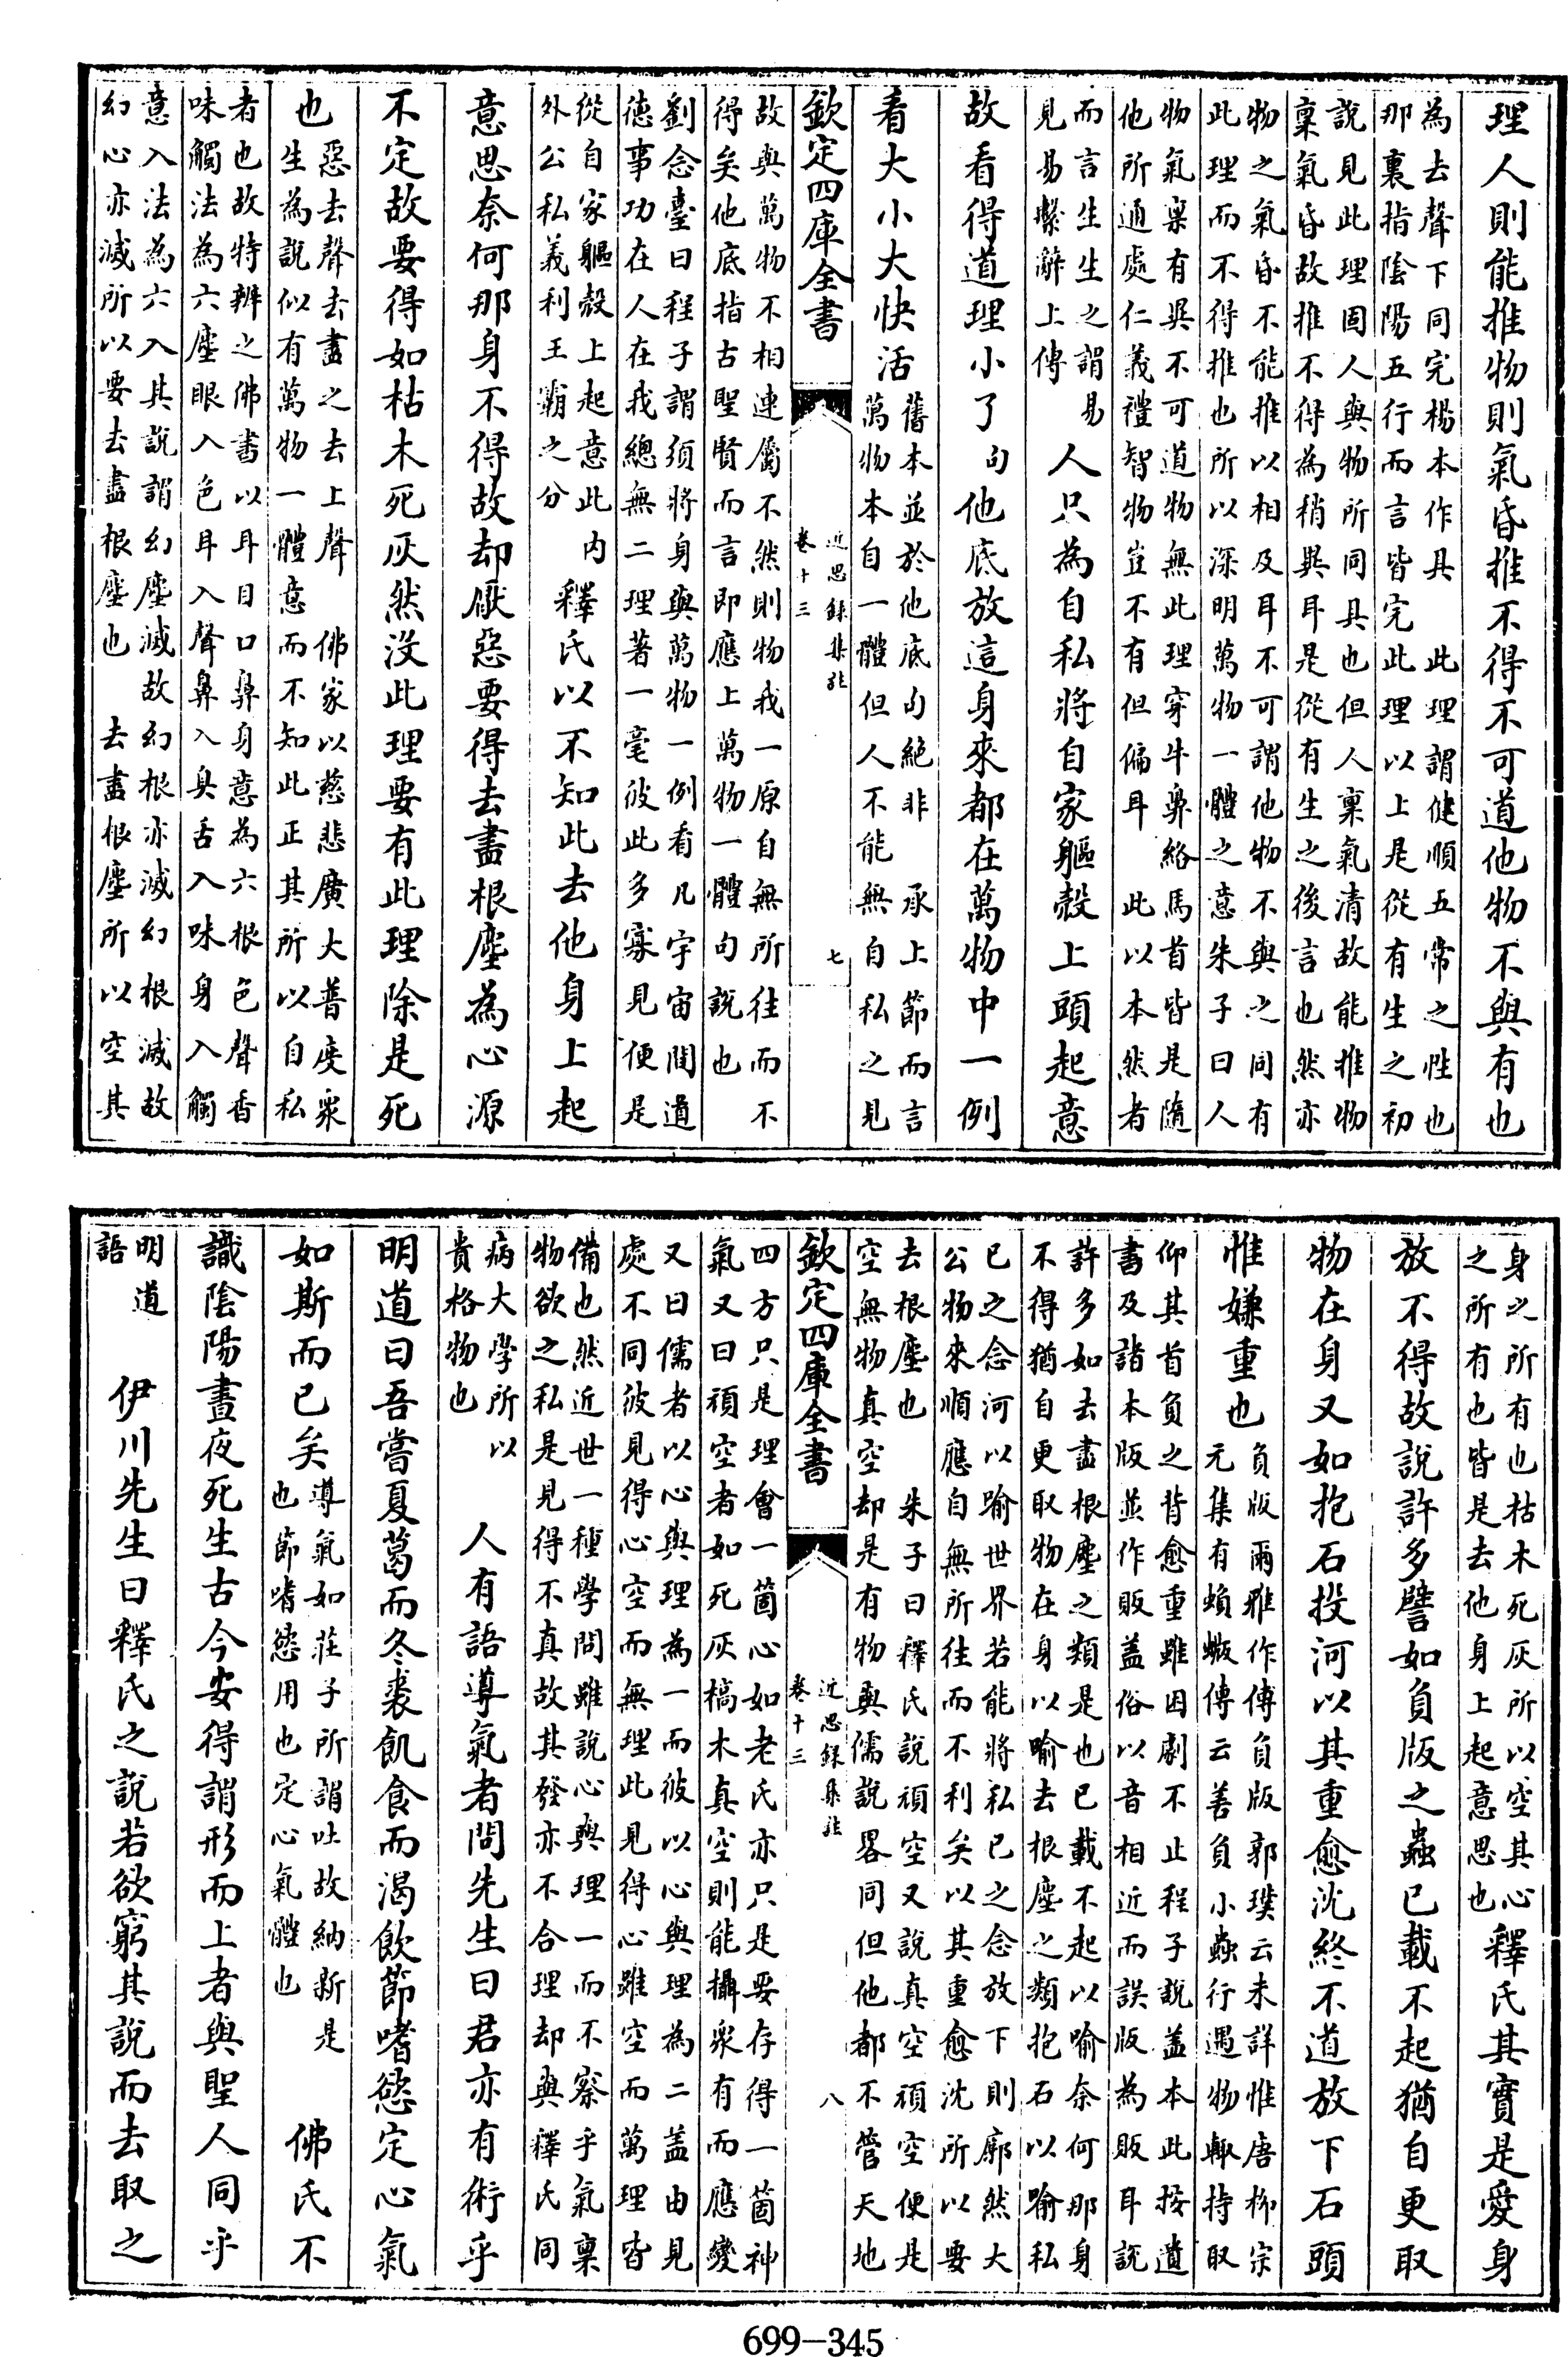 理人則能推物則氣昏推不得不可道他物不與有也
為去聲下同完楊本作具　此理謂健順五常之性也
那裏指陰陽五行而言皆完此理以上是從有生之初
說見此理固人與物所同具也但人稟氣清故能推物
稟氣昏故推不得為稍異耳是從有生之後言也然亦
物之氣昏不能推以相及耳不可謂他物不與之同有
此理而不得推也所以深明萬物一體之意朱子曰人
物氣稟有異不可道物無此理穿牛鼻絡馬首皆是隨
他所通處仁義禮智物豈不有但偏耳　此以本然者
而言生生之謂易
見易繫辭上傳
人只為自私將自家軀殼上頭起意
故看得道理小了句他底放這身來都在萬物中一例
看大小大快活
舊本並於他底句絕非　承上節而言
萬物本自一體但人不能無自私之見
欽定四庫全書
近思錄集註
卷十三
七
故與萬物不相連屬不然則物我一原自無所往而不
得矣他底指古聖賢而言即應上萬物一體句說也
劉念臺曰程子謂須將身與萬物一例看凡宇宙間道
德事功在人在我總無二理著一毫彼此多寡見便是
從自家軀殼上起意此內
外公私義利王霸之分
釋氏以不知此去他身上起
意思奈何那身不得故却厭惡要得去盡根塵為心源
不定故要得如枯木死灰然沒此理要有此理除是死
也
惡去聲去盡之去上聲　佛家以慈悲廣大普度眾
生為說似有萬物一體意而不知此正其所以自私
者也故特辨之佛書以耳目口鼻身意為六根色聲香
味觸法為六塵眼入色耳入聲鼻入臭舌入味身入觸
意入法為六入其說謂幻塵滅故幻根亦滅幻根滅故
幻心亦滅所以要去盡根塵也　去盡根塵所以空其
身之所有也枯木死灰所以空其心
之所有也皆是去他身上起意思也
釋氏其實是愛身
放不得故說許多譬如負版之蟲已載不起猶自更取
物在身又如抱石投河以其重愈沈終不道放下石頭
惟嫌重也
負版爾雅作傅負版郭璞云未詳惟唐柳宗
元集有蝜蝂傳云善負小蟲行遇物輒持取
仰其首負之背愈重雖困劇不止程子說蓋本此按遺
書及諸本版並作販蓋俗以音相近而誤版為販耳說
許多如去盡根塵之類是也已載不起以喻奈何那身
不得猶自更取物在身以喻去根塵之類抱石以喻私
己之念河以喻世界若能將私己之念放下則廓然大
公物來順應自無所往而不利矣以其重愈沈所以要
去根塵也　朱子曰釋氏說頑空又說真空頑空便是
空無物真空却是有物與儒說畧同但他都不管天地
欽定四庫全書
近思錄集註
卷十三
八
四方只是理會一箇心如老氏亦只是要存得一箇神
氣又曰頑空者如死灰槁木真空則能攝眾有而應變
又曰儒者以心與理為一而彼以心與理為二蓋由見
處不同彼見得心空而無理此見得心雖空而萬理皆
備也然近世一種學問雖說心與理一而不察乎氣稟
物欲之私是見得不真故其發亦不合理却與釋氏同
病大學所以
貴格物也
人有語導氣者問先生曰君亦有術乎
明道曰吾嘗夏葛而冬裘飢食而渴飲節嗜慾定心氣
如斯而已矣
導氣如莊子所謂吐故納新是
也節嗜慾用也定心氣體也
佛氏不
識陰陽晝夜死生古今安得謂形而上者與聖人同乎
明道
語
伊川先生曰釋氏之說若欲窮其說而去取之
699-345